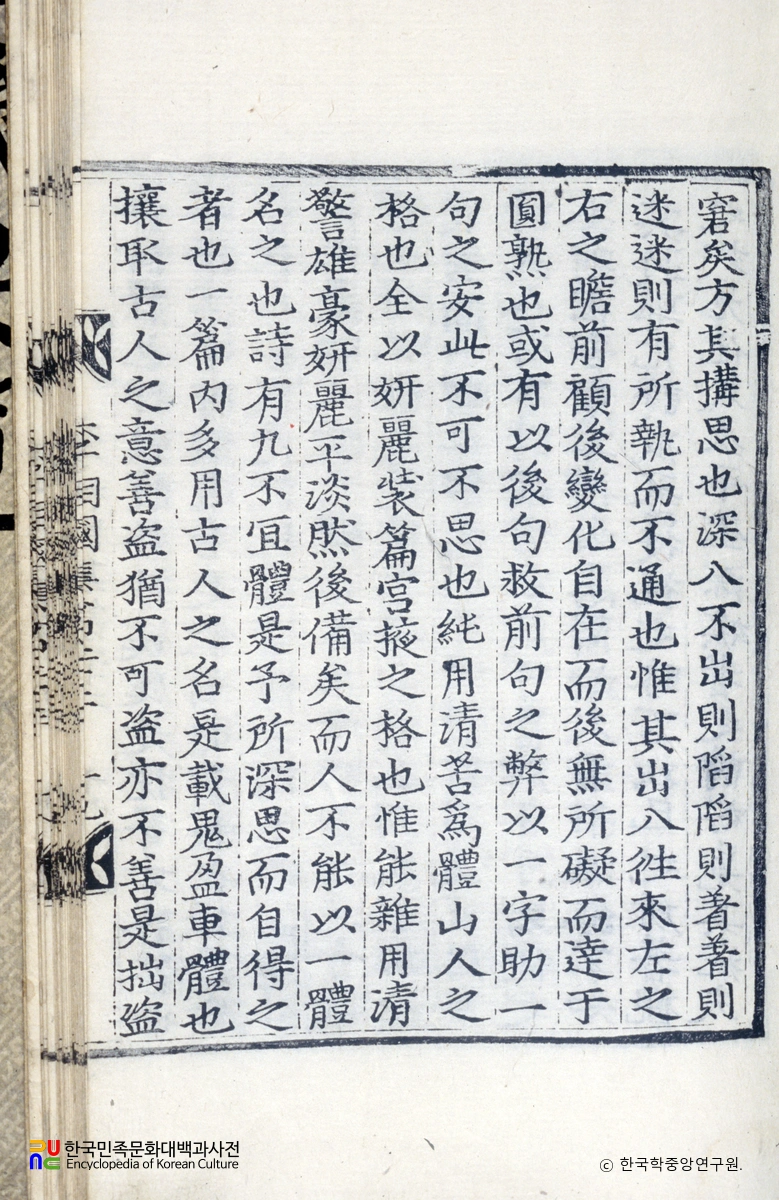 窘矣方其搆思也深入不出則陷陷則著著則
迷迷則有所執而不通也惟其出入徃來左之
右之瞻前顧後變化自在而後無所礙而達于
圓熟也或有以後句救前句之弊以一字助一
句之安此不可不思也純用清苦爲體山人之
格也全以妍麗裝篇宮掖之格也惟能雜用清
警雄豪妍麗平淡然後備矣而人不能以一體
名之也詩有九不宜體是予所深思而自得之
者也一篇內多用古人之名是載鬼盈車體也
攘取古人之意善盜猶不可盜亦不善是拙盜
李相國集第
한국민족문화대백과사전
Encyclopedia of Korean Culture
© 한국학중앙연구원.